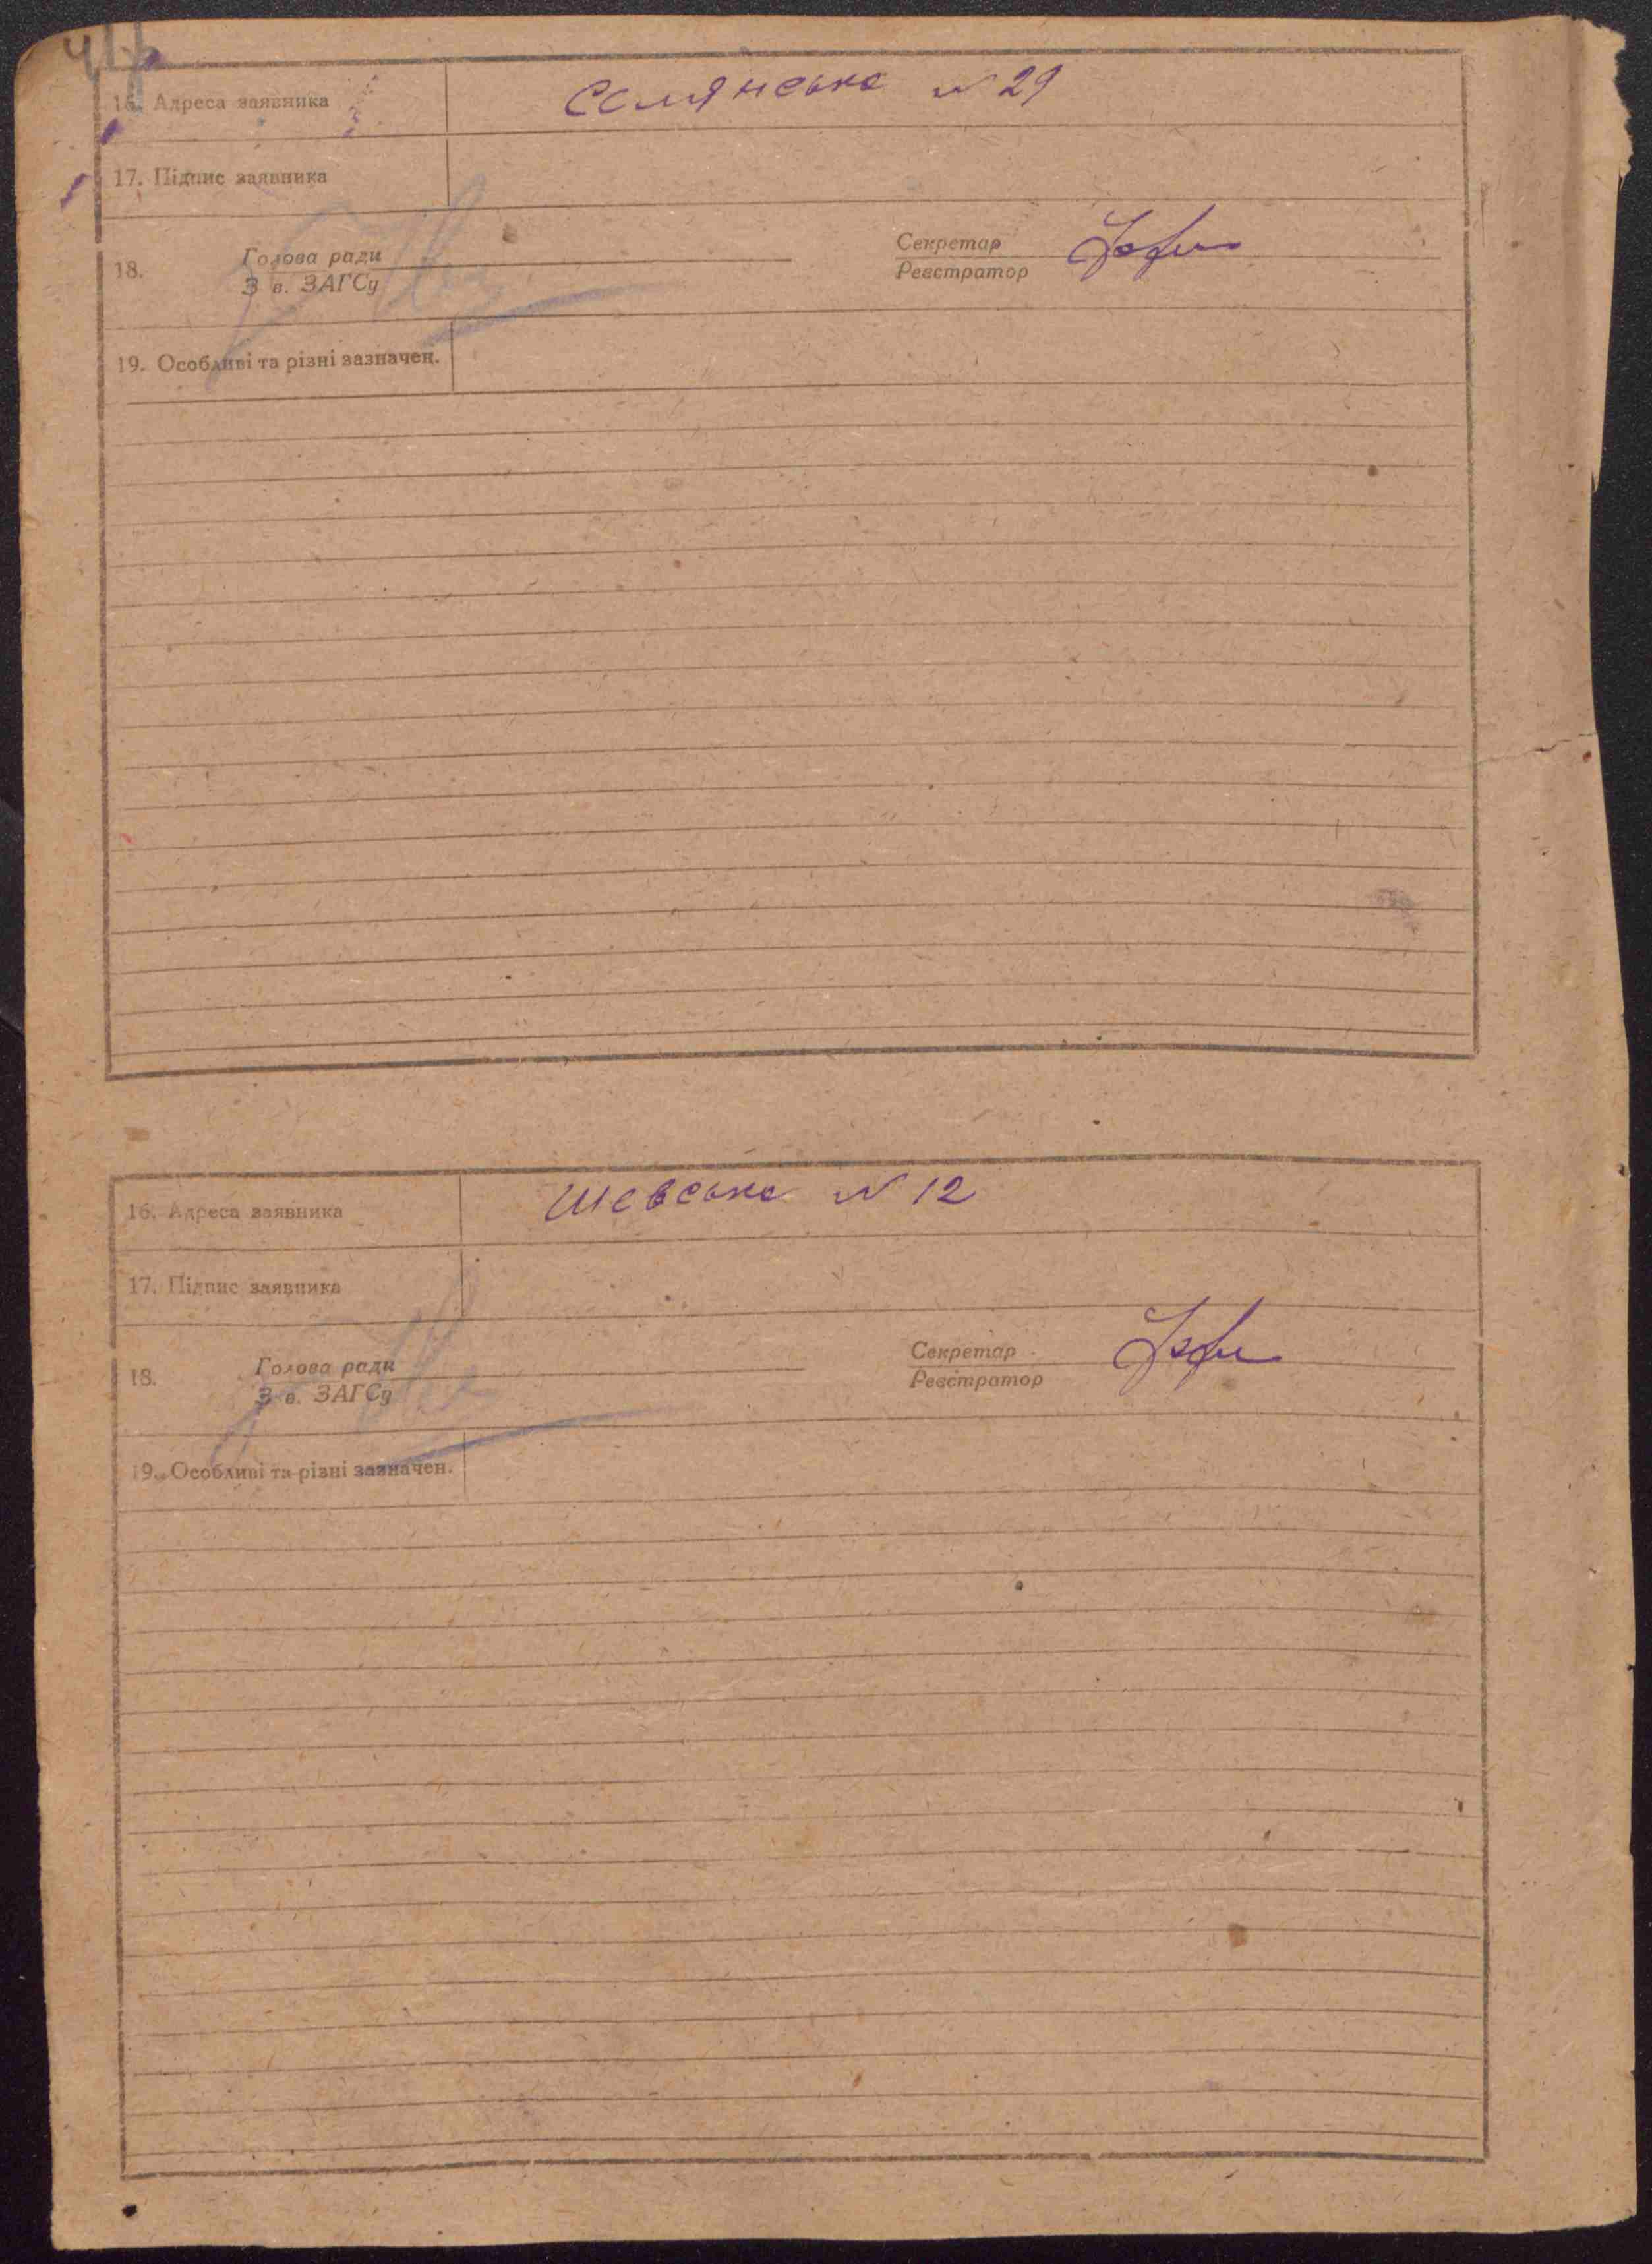 16. Адреса заявника Селянська № 29
17. Підпис заявника
18. Голова ради Секретар
З в. ЗАГСу Реєстратор
19. Особливі та різні зазначен.
16. Адреса заявника Шевська № 12
17. Підпис заявника
18. Голова ради Секретар
З в. ЗАГСу Реєстратор
19. Особливі та різні зазначен.